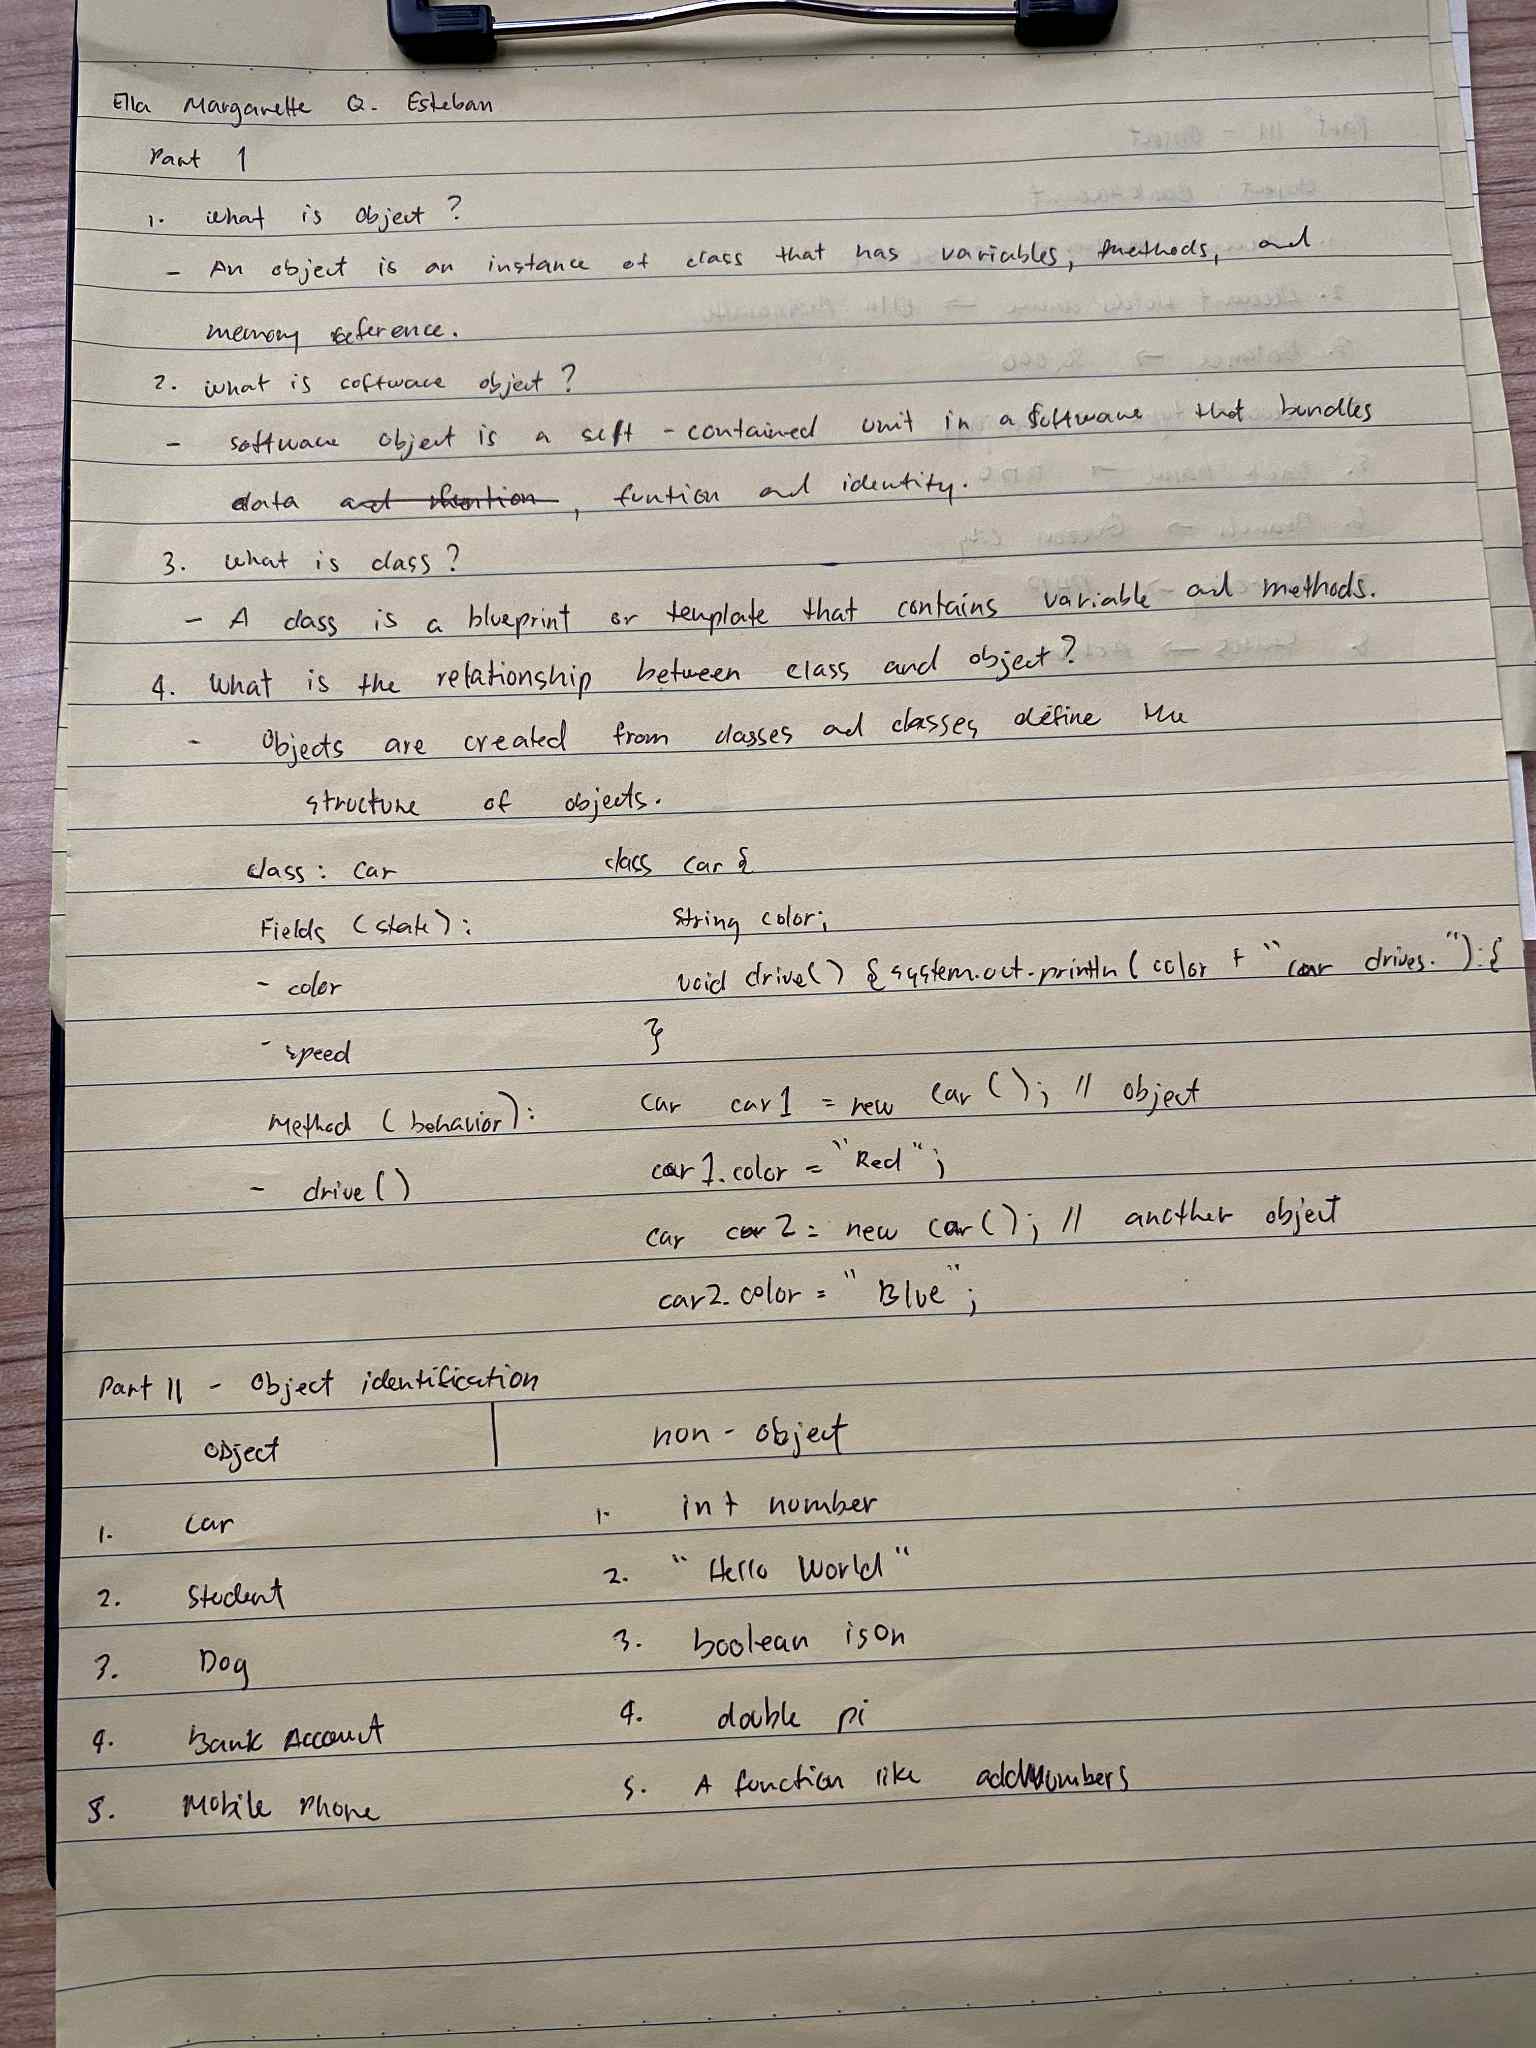 Ella Margarette Q. Esteban
Part 1
1. What is Object ?
- An object is an instance of class that has variables, methods, and
memory reference.
2. What is software object ?
- software object is a self-contained unit in a software that bundles
data and funtion, funtion and identity.
3. What is class ?
- A class is a blueprint or template that contains variable and methods.
4. What is the relationship between class and object ?
- Objects are created from classes and classes define the
structure of objects.
class : Car class car {
Fields (state) : String color;
- color void drive() { system.out.println ( color + "car drives. ") : {
- speed }
Method ( behavior ) : Car car1 = new Car (); // object
- drive() car1.color = "Red" ;
Car car2 = new Car(); // another object
car2.color = "Blue" ;
Part II - Object identification
Object non - object
1. Car 1. int number
2. Student 2. "Hello World"
3. Dog 3. boolean ison
4. Bank Account 4. double pi
5. Mobile Phone 5. A function like addNumbers